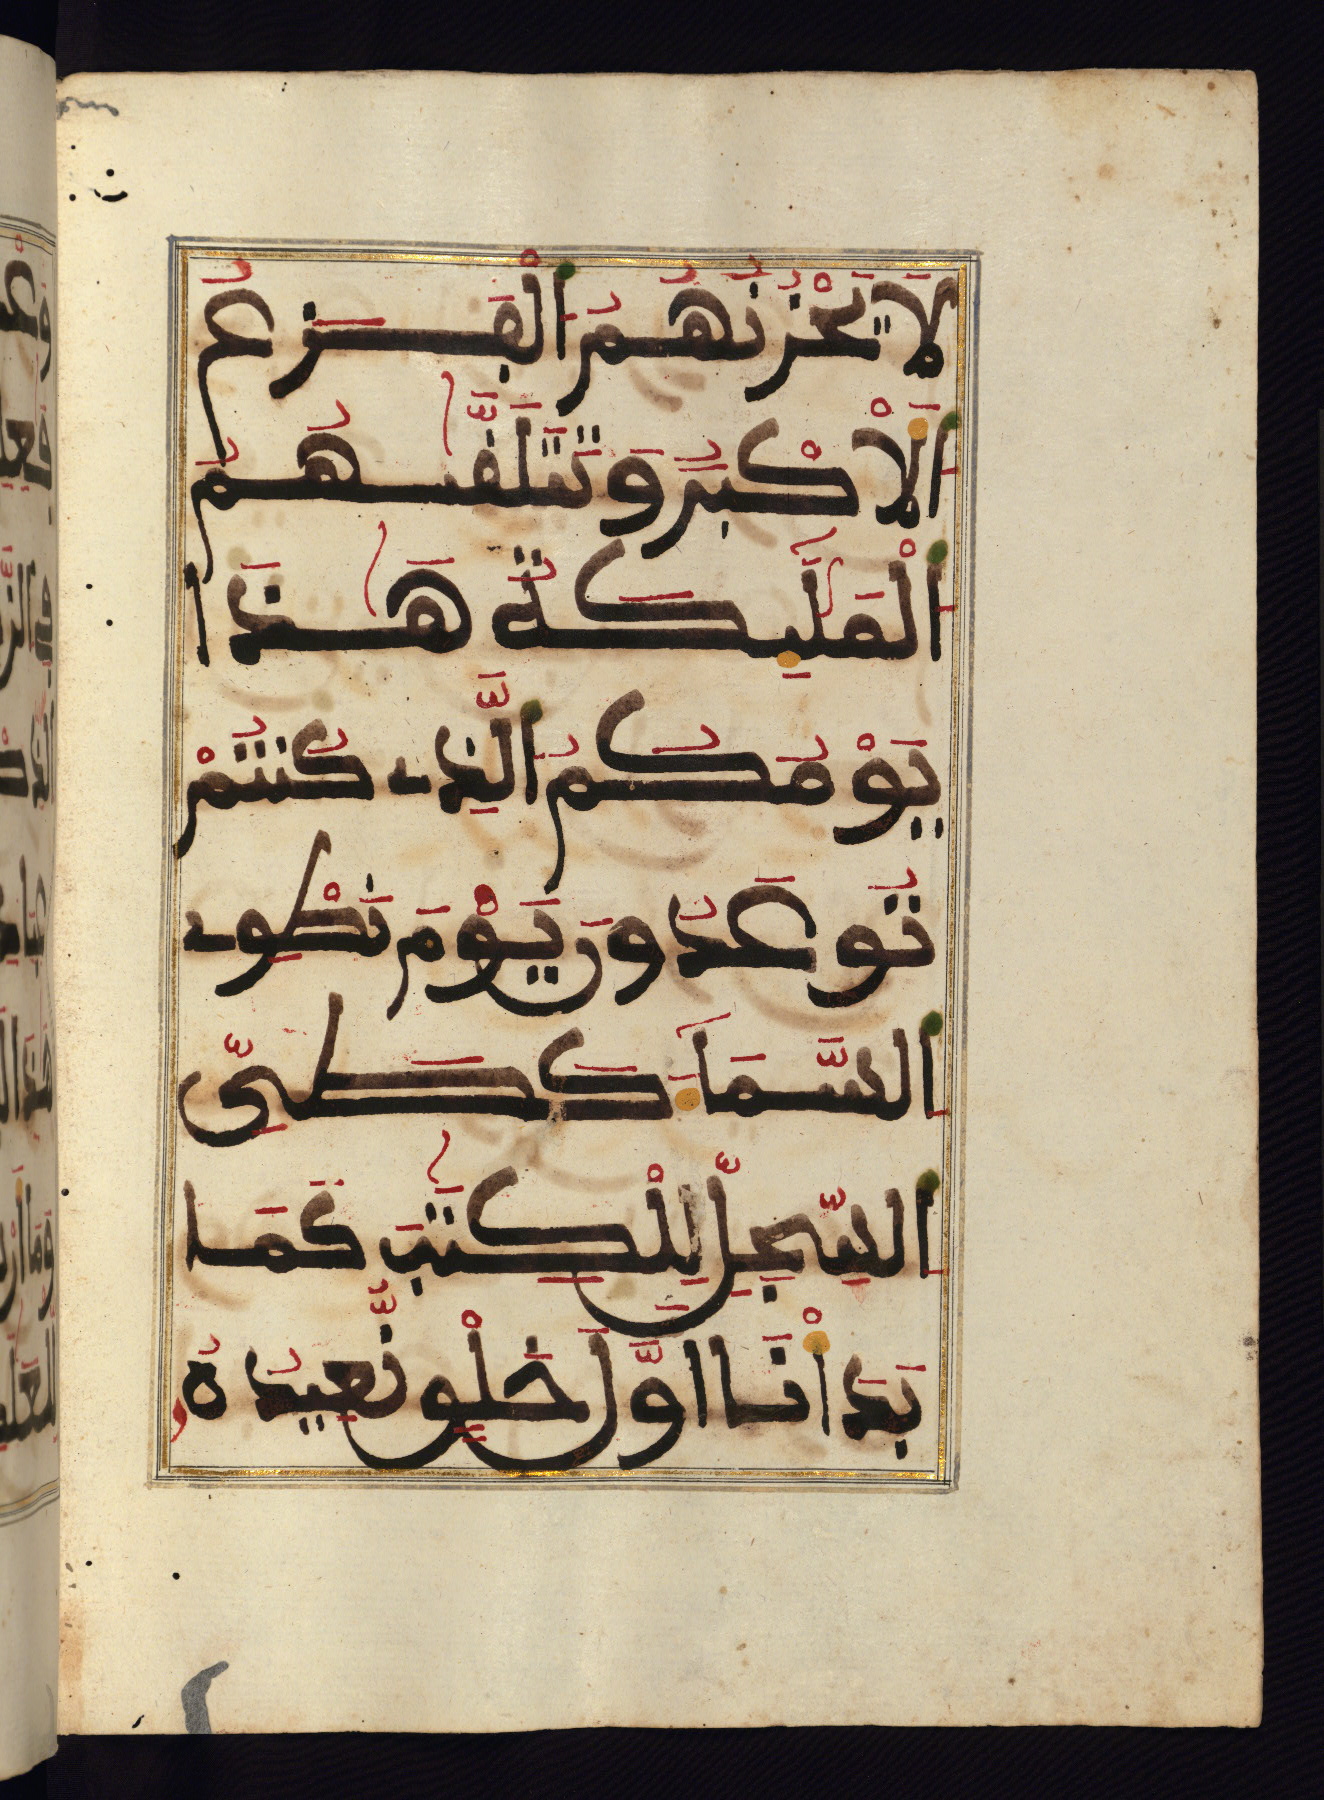 لَا يَحْزُنُهُمُ الْفَزَعُ
الْأَكْبَرُ وَتَتَلَقَّىٰهُمُ
الْمَلَٰٓئِكَةُ هَٰذَا
يَوْمُكُمُ الَّذِے كُنتُمْ
تُوعَدُونَ يَوْمَ نَطْوِے
السَّمَآءَ كَطَيِّ
السِّجِلِّ لِلْكِتَٰبِ كَمَا
بَدَأْنَا أَوَّلَ خَلْقٍ نُّعِيدُهُ